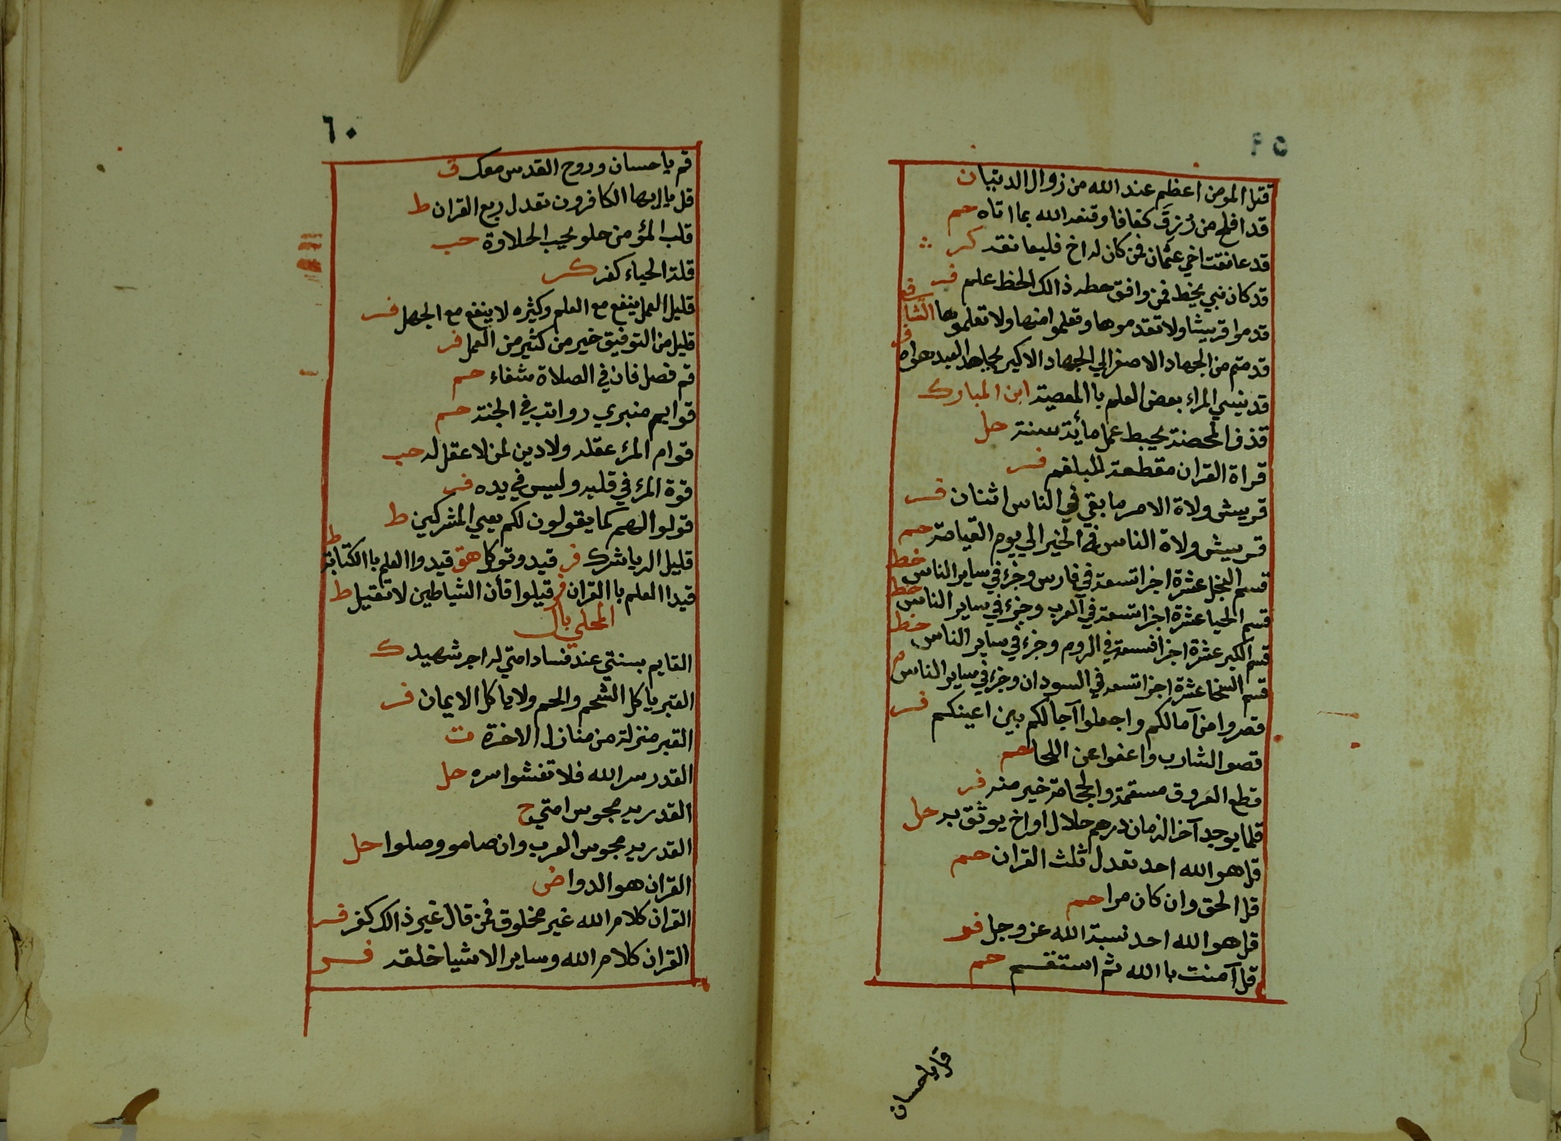 قتل المومن اعظم عند الله من زوال الدنيا ن
قد افلح من رزق كفافا وقنعه الله بما اتاه حم
قد عانقت اخي عثمان فمن كان له اخ فليعانقه كر
قد كان نبي يخط فمن وافق خطه ذالك الخط علم فر
قدموا قريشا ولا تقدموها وتعلموا منها ولا تعلموها الشا فع
قدمتم من الجهاد الاصغر الي الجهاد الاكبر مجاهدة العبد هواه
قد ينسي المراء بعض العلم با المعصية ابن المبارك
قذف المحصنة يحبط عمل مائة سنة حل
قراة القران مقطعة للبلغم فر
قريش ولاة الامر ما بقي في الناس اثنان فر
قريش ولاة الناس في الخير الي يوم القيامة حم
قسم البخل عشرة اجزا تسعة في فارس وجزء في ساير الناس خط
قسم الحيا عشرة اجزا تسعة في العرب وجزء في ساير الناس خط
قسم الكبر عشرة اجزا فسعة في الروم وجزء في ساير الناس خط
قسم السخا عشرة اجزا تسعة في السودان وجزء في ساير الناس
قصروا من آمالكم واجعلوا آجالكم بين اعينكم فر
قصو الشارب واعفوا عن اللحا حم
قطع العروق مسقمة والحجامة خير منه فر
قلما يوجد آخر الزمان درهم حلال او اخ يوثق به حل
قل هو الله احد تعدل ثلث القران حم
قل الحق وان كان مرا حم
قل هو الله احد نسبة الله عز وجل فر
قل آمنت با الله ثم استقم حم
قل يا حسان
٦٠
قم يا حسان وروح القدس معك ق
قل يا ايها الكافرون تعدل ربع القران ط
قلب المؤمن حلو يحب الحلاوة حب
قلة الحياء كفر كر
قليل العمل ينفع مع العلم وكثيره لا ينفع مع الجهل فر
قليل من التوفيق خير من كثير من العمل فر
قم فصل فان في الصلاة شفاء حم
قوايم منبري رواتب في الجنة حم
قوام المرء عقله ولا دين لمن لا عقل له حب
قوة المرء في قلبه وليس في يده فر
قولوا لهم كما يقولون لكم يعني المشركين ط
قليل الريا شرك فر قيد وتوكل هق قيدوا العلم با الكتابة ط
قيدا العلم با القران فر قيلوا فأن الشياطين لا تقيل ط
المحلي بال
القايم بسنتي عند فساد امتي له اجر شهيد ك
القبر ياكل الشحم والحم ولا ياكل الايمان فر
القبر منزلة من منازل الاخرة ت
القدر سر الله فلا تفشوا سره حل
القدريه مجوس امتي ح
القدريه مجوس العرب وان صامو وصلوا حل
القران هو الدوا ض
القران كلام الله غير مخلوق فمن قال غير ذالك كفر فر
القران كلام الله وساير الاشيا خلقه فر